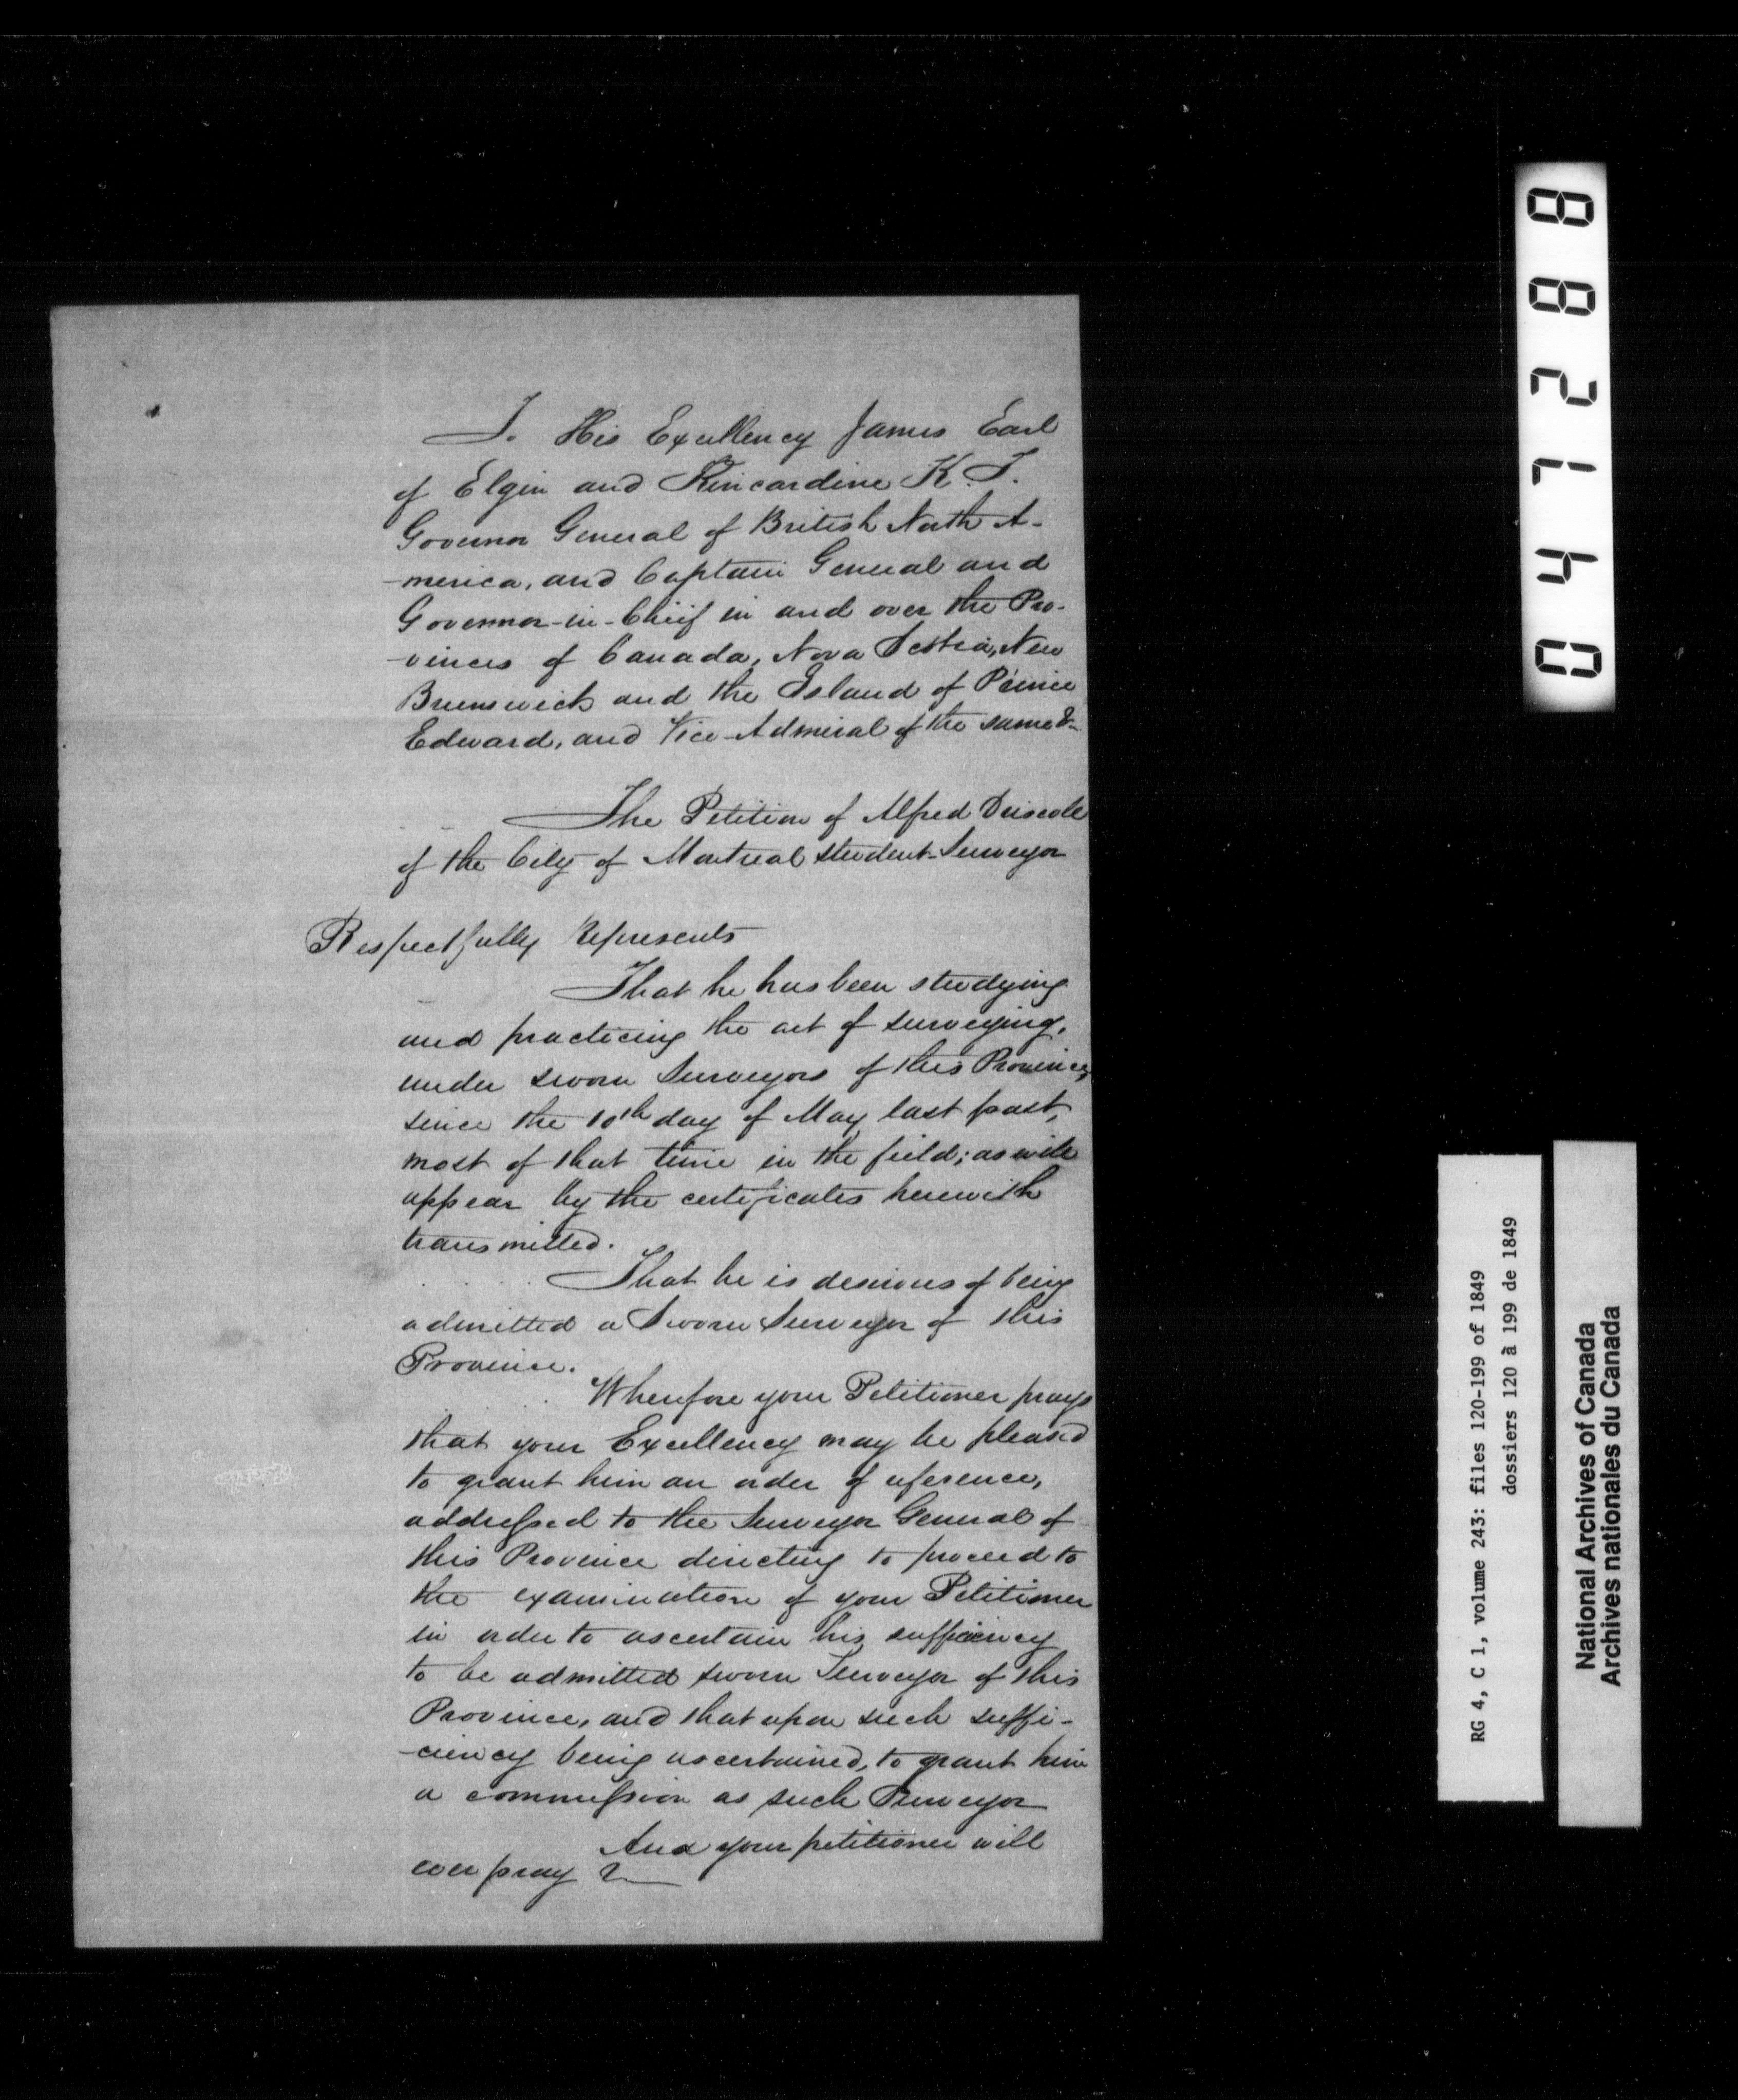 To His Excellency James Earl
of Elgin and Kincardine K.T.
Governor General of British North A-
-merica, and Captain General and
Governor-in-Chief in and over the Pro-
-vinces of Canada, Nova Scotia, New
Brunswick and the Island of Prince
Edward, and Vice-Admiral of the same &-
The Petition of Alfred Driscoll
of the City of Montreal student-Surveyor
Respectfully Represents
That he has been studying
and practicing the art of surveying,
under sworn Surveyors of this Province,
since the 10th day of May last past,
most of that time in the field; as will
appear by the certificates herewith
transmitted.
That he is desirous of being
admitted a Sworn Surveyor of this
Province.
Wherefore your Petitioner prays
that your Excellency may be pleased
to grant him an order of reference,
addressed to the Surveyor General of
this Province directing to proceed to
the examination of your Petitioner
in order to ascertain his sufficiency
to be admitted sworn Surveyor of this
Province, and that upon such suffi-
-ciency being ascertained, to grant him
a commission as such Surveyor
And your petitioner will
ever pray &
047288
RG 4, C 1, volume 243: files 120-199 of 1849
dossiers 120 à 199 de 1849
National Archives of Canada
Archives nationales du Canada